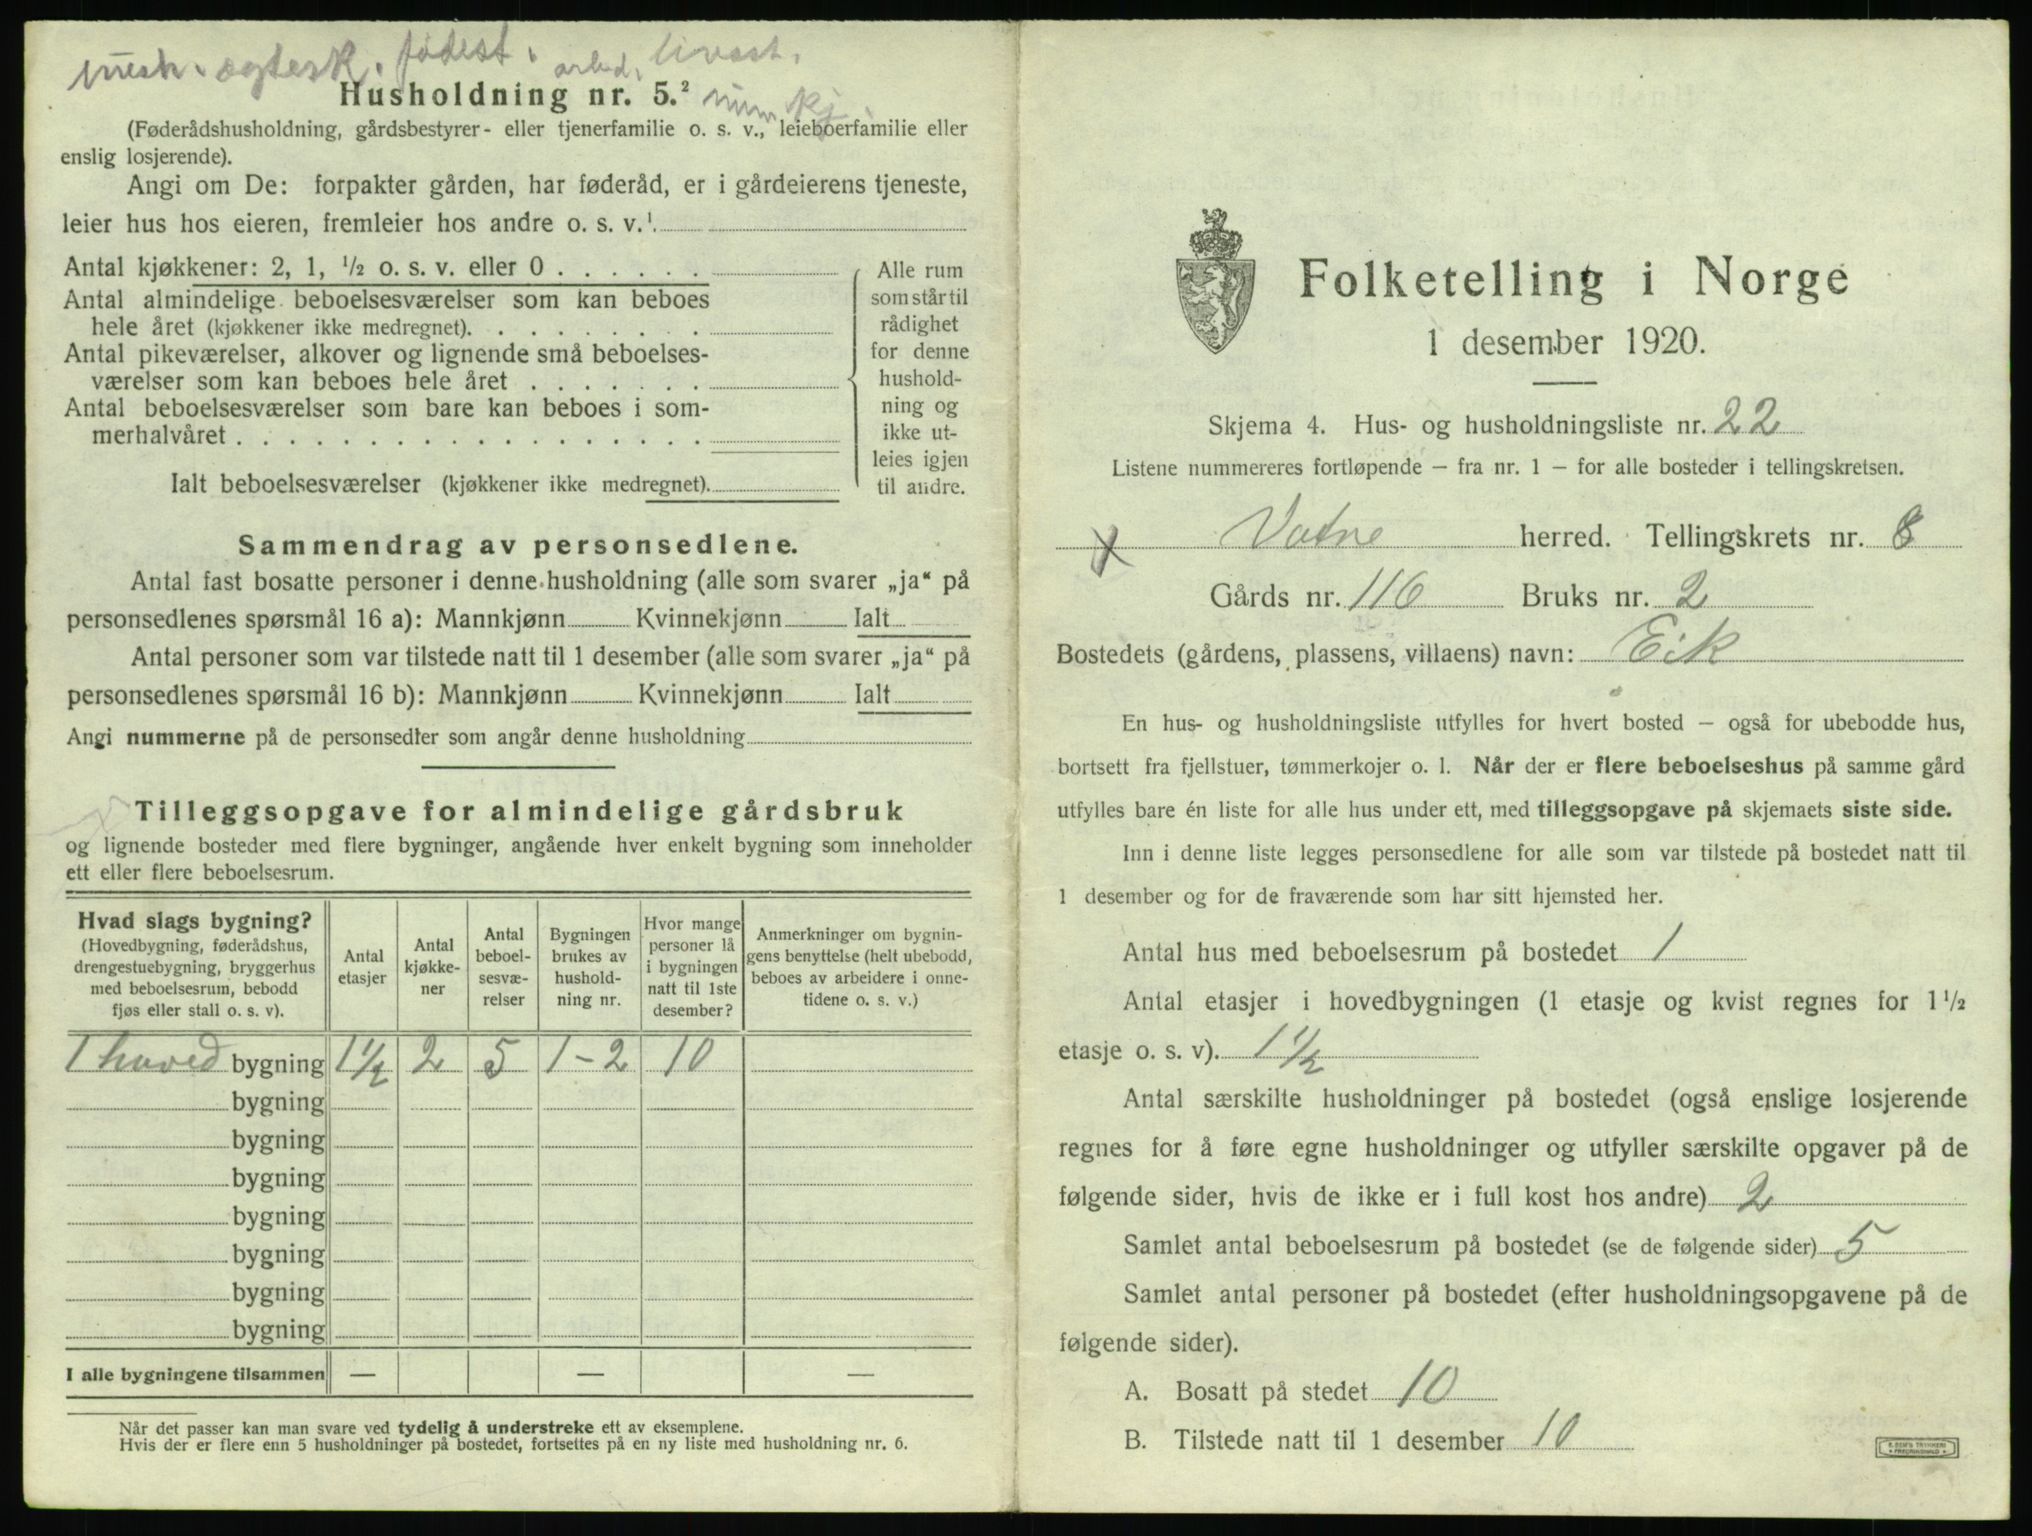 ægtesk. fødest. arbeid. livsst.
Husholdning nr. 5.²
num kj.
(Føderådshusholdning, gårdsbestyrer- eller tjenerfamilie o. s. v., leieboerfamilie eller
enslig losjerende).
Angi om De: forpakter gården, har føderåd, er i gårdeierens tjeneste,
leier hus hos eieren, fremleier hos andre o. s. v.¹
Antal kjøkkener: 2, 1, ½ o. s. v. eller 0 . . . . . .
Antal almindelige beboelsesværelser som kan beboes
hele året (kjøkkener ikke medregnet). . . . . . . . .
Antal pikeværelser, alkover og lignende små beboelses-
værelser som kan beboes hele året . . . . . . .
Antal beboelsesværelser som bare kan beboes i som-
merhalvåret . . . . . . . . . . . . . . . . . .
Ialt beboelsesværelser (kjøkkener ikke medregnet).
Alle rum
som står til
rådighet
for denne
hushold-
ning og
ikke ut-
leies igjen
til andre.
Sammendrag av personsedlene.
Antal fast bosatte personer i denne husholdning (alle som svarer „ja“ på
personsedlenes spørsmål 16 a): Mannkjønn Kvinnekjønn Ialt
Antal personer som var tilstede natt til 1 desember (alle som svarer „ja“ på
personsedlenes spørsmål 16 b): Mannkjønn Kvinnekjønn Ialt
Angi nummerne på de personsedler som angår denne husholdning
Tilleggsopgave for almindelige gårdsbruk
og lignende bosteder med flere bygninger, angående hver enkelt bygning som inneholder
ett eller flere beboelsesrum.
Hvad slags bygning?
(Hovedbygning, føderådshus,
drengestuebygning, bryggerhus
med beboelsesrum, bebodd
fjøs eller stall o. s. v).
Antal
etasjer
Antal
kjøkke-
ner
Antal
beboel-
sesvæ-
relser
Bygningen
brukes av
hushold-
ning nr.
Hvor mange
personer lå
i bygningen
natt til 1ste
desember?
Anmerkninger om bygnin-
gens benyttelse (helt ubebodd,
beboes av arbeidere i onne-
tidene o. s. v.)
1 hoved bygning 1½ 2 5 1-2 10
bygning
bygning
bygning
bygning
bygning
bygning
bygning
I alle bygningene tilsammen — — —
Når det passer kan man svare ved tydelig å understreke ett av eksemplene.
Hvis der er flere enn 5 husholdninger på bostedet, fortsettes på en ny liste med husholdning nr. 6.
Folketelling i Norge
1 desember 1920.
Skjema 4. Hus- og husholdningsliste nr. 22
Listene nummereres fortløpende – fra nr. 1 – for alle bosteder i tellingskretsen.
X Vatne herred. Tellingskrets nr. 8
Gårds nr. 116 Bruks nr. 2
Bostedets (gårdens, plassens, villaens) navn: Eik
En hus- og husholdningsliste utfylles for hvert bosted – også for ubebodde hus,
bortsett fra fjellstuer, tømmerkojer o. l. Når der er flere beboelseshus på samme gård
utfylles bare én liste for alle hus under ett, med tilleggsopgave på skjemaets siste side.
Inn i denne liste legges personsedlene for alle som var tilstede på bostedet natt til
1 desember og for de fraværende som har sitt hjemsted her.
Antal hus med beboelsesrum på bostedet 1
Antal etasjer i hovedbygningen (1 etasje og kvist regnes for 1½
etasje o. s. v). 1½
Antal særskilte husholdninger på bostedet (også enslige losjerende
regnes for å føre egne husholdninger og utfyller særskilte opgaver på de
følgende sider, hvis de ikke er i full kost hos andre) 2
Samlet antal beboelsesrum på bostedet (se de følgende sider) 5
Samlet antal personer på bostedet (efter husholdningsopgavene på de
følgende sider).
A. Bosatt på stedet 10
B. Tilstede natt til 1 desember 10